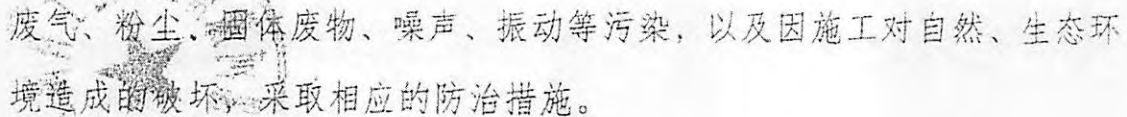 废气、粉尘、固体废物、噪声、振动等污染，以及因施工对自然、生态环
境造成的破坏，采取相应的防治措施。